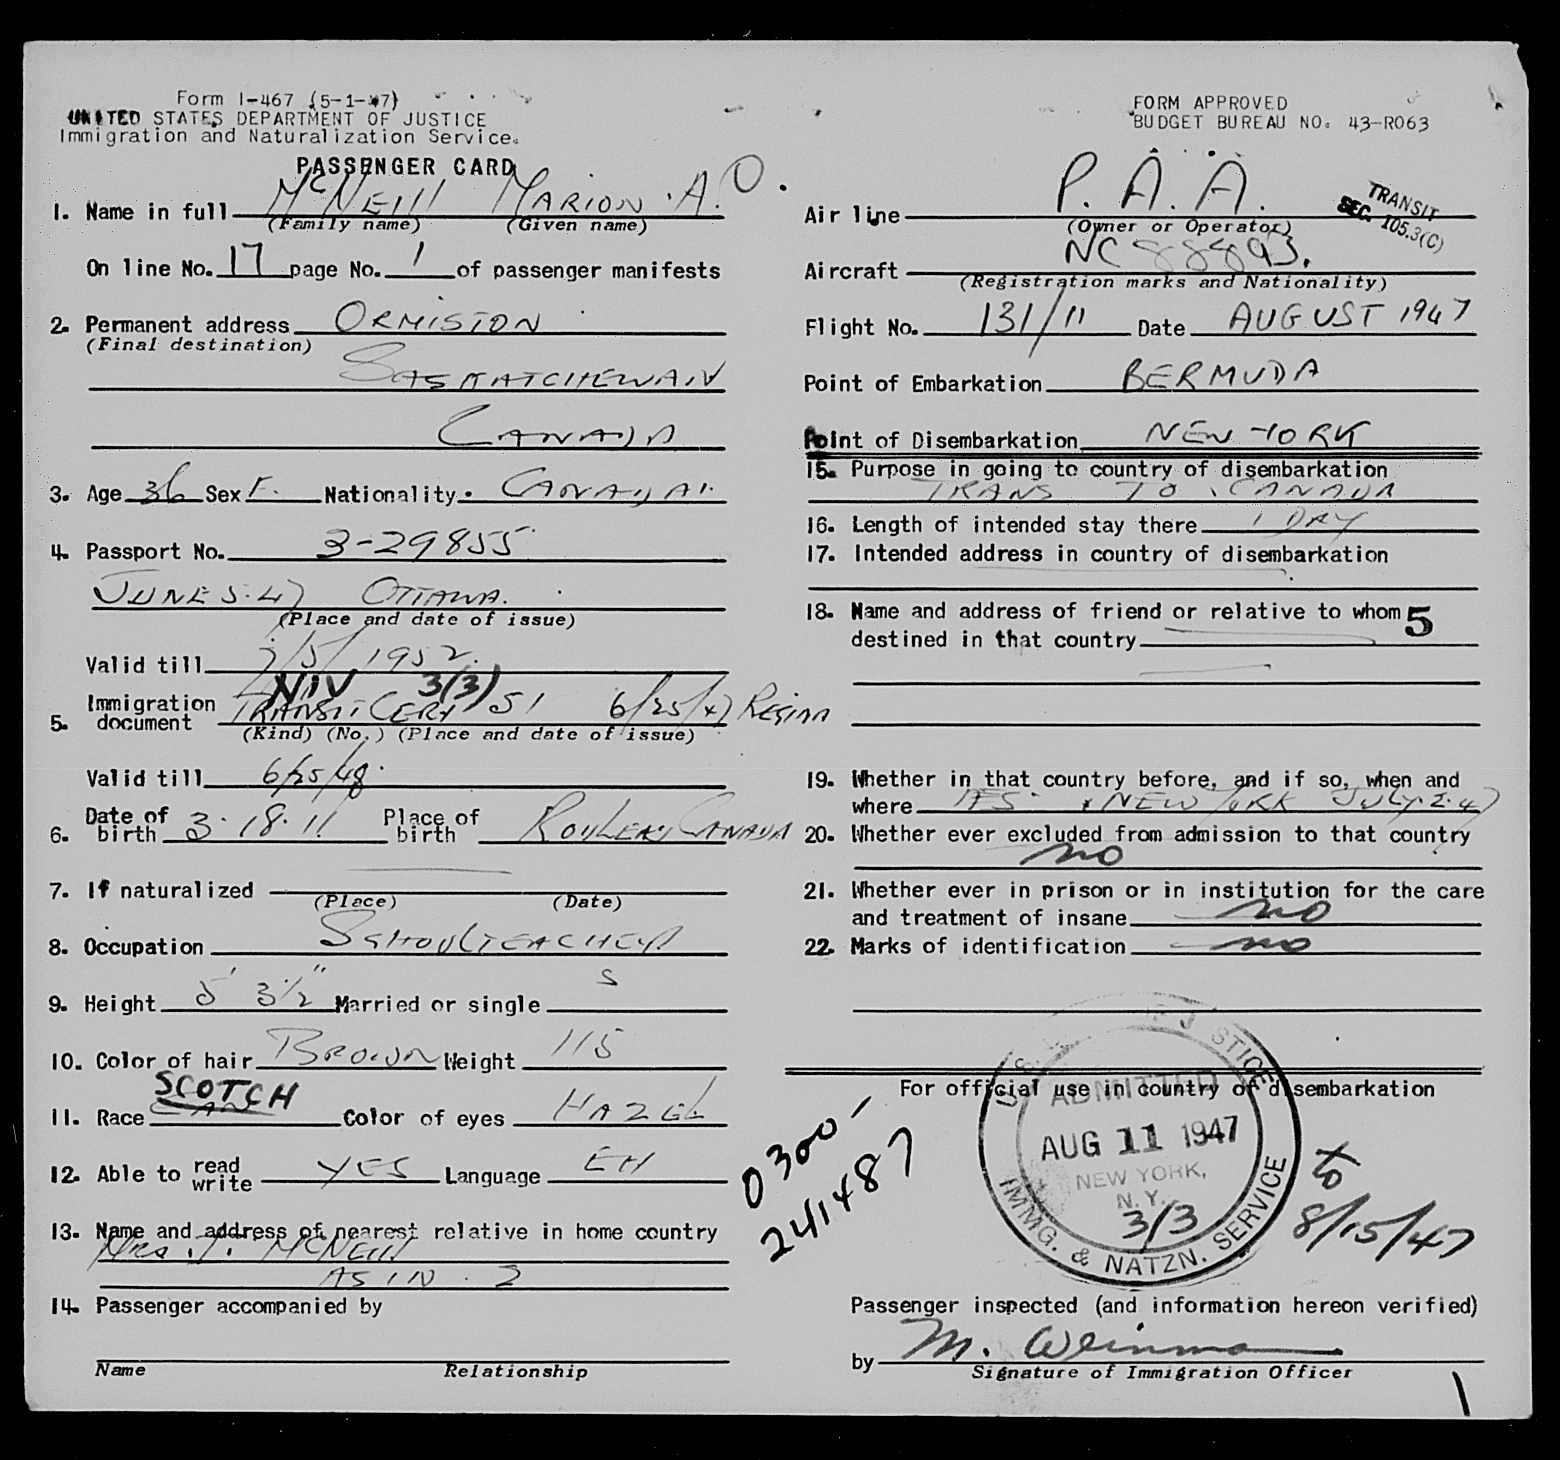 Form I-467 (5-1-47)
UNITED STATES DEPARTMENT OF JUSTICE
Immigration and Naturalization Service.
PASSENGER CARD
1. Name in full McNeill Marion A. O.
(Family name) (Given name)
On line No. 17 page No. 1 of passenger manifests
2. Permanent address ORMISTON
(Final destination)
SASKATCHEWAN
CANADA
3. Age 36 Sex F. Nationality.
4. Passport No. 3-29855
JUNE 5.47 OTTAWA.
(Place and date of issue)
Valid till /5/1952.
NIV 3(3)
5. Immigration document TRANSIT CERT 51 6/25/47 REGINA
(Kind) (No.) (Place and date of issue)
Valid till 6/25/48.
6. Date of birth 3.18.11 Place of birth CANADA
7. If naturalized
(Place) (Date)
8. Occupation SCHOOLTEACHER
9. Height 5' 3½" Married or single S
10. Color of hair BROWN Weight 115
11. Race SCOTCH Color of eyes HAZEL
12. Able to read write YES Language
13. Name and address of nearest relative in home country
Mrs. McNeill
AS IN 2
14. Passenger accompanied by
Name Relationship
FORM APPROVED
BUDGET BUREAU NO. 43-R063
Air line P.A.A.
(Owner or Operator)
TRANSIT
SEC. 105.3(C)
Aircraft NC 88893.
(Registration marks and Nationality)
Flight No. 131/11 Date AUGUST 1947
Point of Embarkation BERMUDA
Point of Disembarkation NEW YORK
15. Purpose in going to country of disembarkation
TRANS TO CANADA
16. Length of intended stay there 1 DAY
17. Intended address in country of disembarkation
18. Name and address of friend or relative to whom 5
destined in that country
19. Whether in that country before, and if so, when and
where YES NEW YORK JULY.2.47
20. Whether ever excluded from admission to that country
no
21. Whether ever in prison or in institution for the care
and treatment of insane no
22. Marks of identification no
For official use in country of disembarkation
0300-
241487
U.S. JUSTICE
ADMITTED
AUG 11 1947
NEW YORK,
N.Y.
3/3
IMMG. & NATZN. SERVICE
to
8/15/47
Passenger inspected (and information hereon verified)
by M.
Signature of Immigration Officer